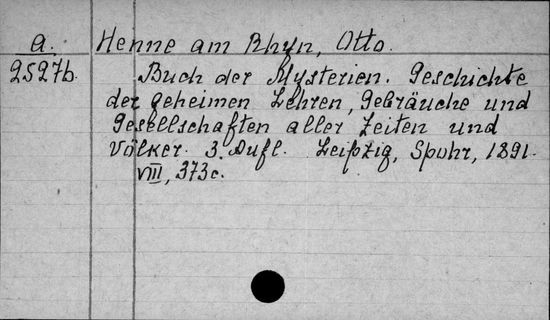 a. Henne am Rhyn, Otto.
2527b. Buch der Mysterien. Geschichte
der geheimen Lehren, Gebräuche und
Gesellschaften aller Zeiten und
Völker. 3. Aufl. Leipzig, Spohr, 1891.
VIII, 373c.